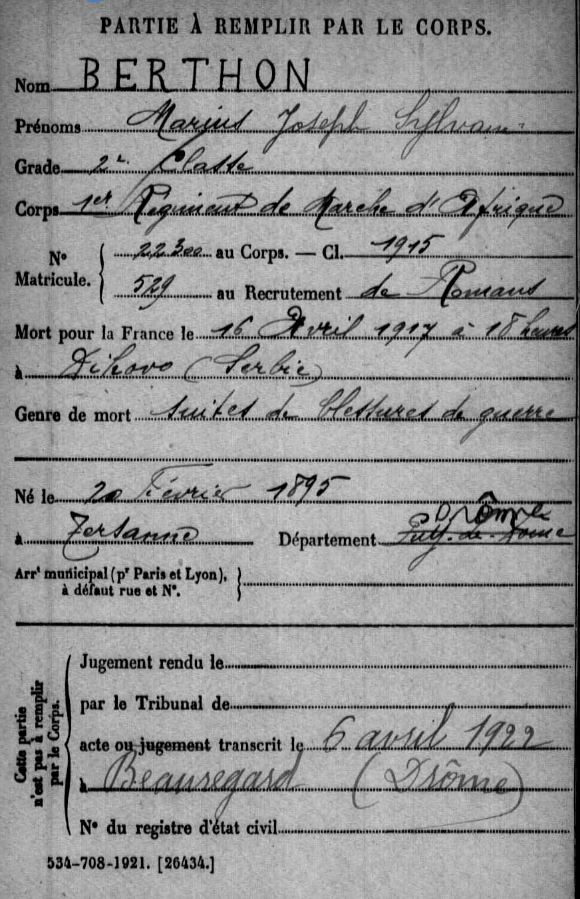 PARTIE À REMPLIR PAR LE CORPS.
Nom BERTHON
Prénoms Marius Joseph Sylvain
Grade 2e Classe
Corps 1er Régiment de Marche d'Afrique
N° Matricule. 22300 au Corps. — Cl. 1915
529 au Recrutement de Romans
Mort pour la France le 16 Avril 1917 à 18 heures
à Dihovo (Serbie)
Genre de mort Suites de blessures de guerre
Né le 20 Février 1895
Drôme
à Tersanne Département Puy-de-Dome
Arrt municipal (pr Paris et Lyon),
à défaut rue et N°.
Cette partie n'est pas à remplir par le Corps.
Jugement rendu le
par le Tribunal de
acte ou jugement transcrit le 6 avril 1922
à Beauregard (Drôme)
N° du registre d'état civil
534-708-1921. [26434.]